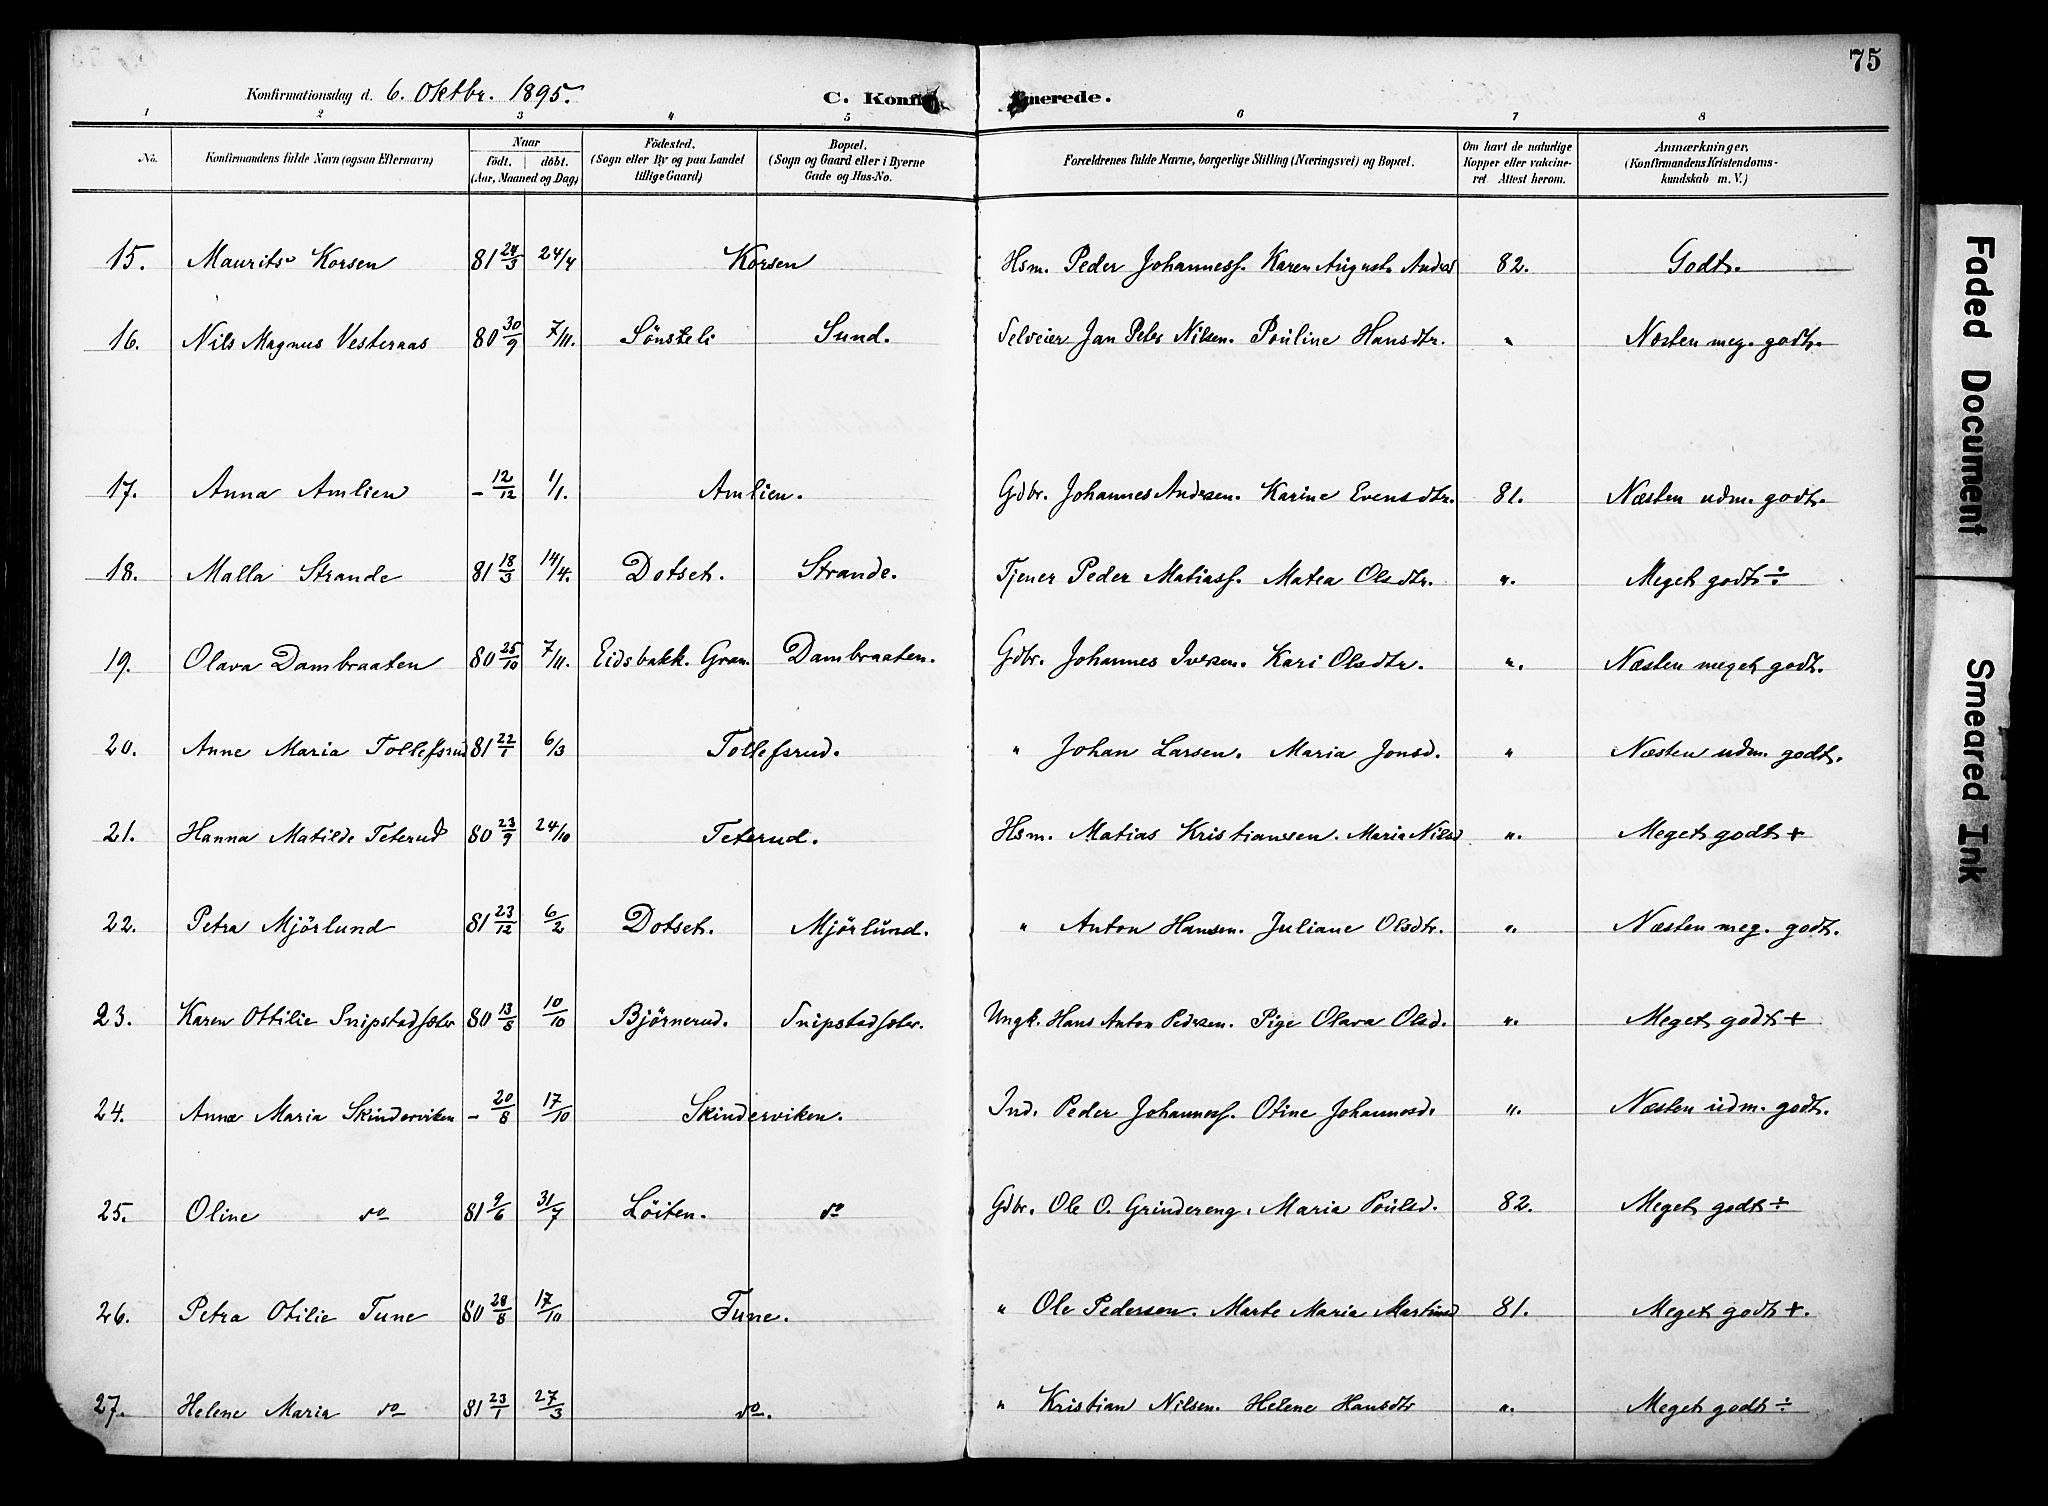 75
Konfirmationsdag d. 6. Oktbr. 1895.
C. Konfirmerede.
1 2 3 4 5 6 7 8
No. Konfirmandens fulde Navn (ogsaa Efternavn) Naar født. døbt. (Aar, Maaned og Dag) Födested. (Sogn eller By og paa Landet tillige Gaard) Bopæl. (Sogn og Gaard eller i Byerne Gade og Hus-No. Forældrenes fulde Navne, borgerlige Stilling (Næringsvei) og Bopæl. Om havt de naturlige Kopper eller vakcineret Attest herom. Anmærkninger, (Konfirmandens Kristendomskundskab m. V.)
15. Maurits Korsen 81 24/3 24/4 Korsen Hsm. Peder Johanness. Karen August. Andrs 82. Godt.
16. Nils Magnus Vesteraas 80 30/9 7/11. Sönsteli Sund. Selveier Jan Peter Nilsen. Pouline Hansdtr. " Næsten meg. godt.
17. Anna Amlien - 12/12 1/1. Amlien. Gdbr. Johannes Andersen. Karine Evensdtr. 81. Næsten udm. godt.
18. Malla Strande 81 18/3 14/4. Dotset. Strande. Tjener Peder Matiass. Matea Olsdtr. ". Meget godt ÷
19. Olava Dambraaten 80 25/10 7/11. Eidsbakk. Gran. Dambraaten. Gdbr. Johannes Iversen. Kari Olsdtr. ". Næsten meget godt.
20. Anne Maria Tollefsrud 81 22/1 6/3 Tollefsrud. " Johan Larsen. Maria Jonsd. " Næsten udm. godt.
21. Hanna Matilde Teterud 80 23/9 24/10 Teterud. Hsm. Matias Kristiansen. Maria Nilsd ". Meget godt +
22. Petra Mjörlund 81 23/12 6/2 Dotset. Mjörlund. " Anton Hansen. Juliane Olsdtr. ". Næsten meg. godt.
23. Karen Ottilie Snipstadsæter 80 13/8 10/10 Björnerud. Snipstadsæter. Ungk. Hans Anton Pedersen. Pige Olava Olsd. ". Meget godt +
24. Anna Maria Skinderviken - 20/8 17/10 Skinderviken. Ind. Peder Johanness. Otine Johannesd. ". Næsten udm. godt.
25. Oline do 81 9/6 31/7 Löiten. do Gdbr. Ole O. Grindereng. Maria Poulsd. 82. Meget godt ÷
26. Petra Otilie Tune 80 28/8 17/10 Tune. " Ole Pedersen. Marte Maria Martinsd 81. Meget godt +.
27. Helene Maria do 81 23/1 27/3 do. " Kristian Nilsen. Helene Hansdtr ". Meget godt ÷
Faded Document
Smeared Ink